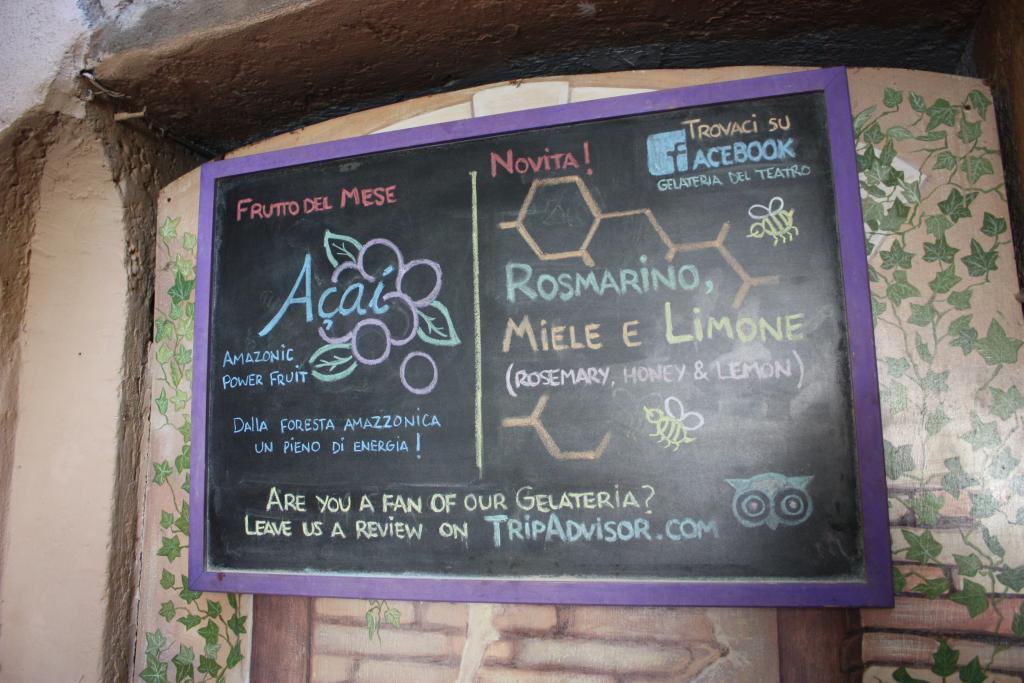 FRUTTO DEL MESE
Açaí
AMAZONIC
POWER FRUIT
DALLA FORESTA AMAZZONICA
UN PIENO DI ENERGIA!
NOVITA!
TROVACI SU
FACEBOOK
GELATERIA DEL TEATRO
ROSMARINO,
MIELE E LIMONE
(ROSEMARY, HONEY & LEMON)
ARE YOU A FAN OF OUR GELATERIA?
LEAVE US A REVIEW ON TRIPADVISOR.COM